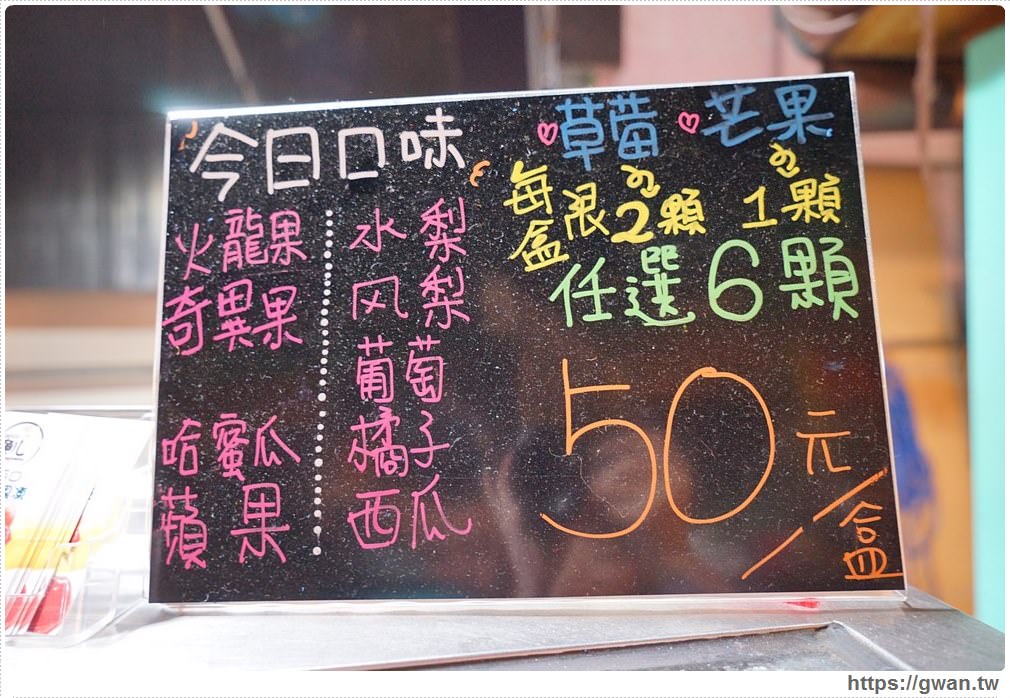 今日口味
火龍果
奇異果
哈蜜瓜
蘋果
水梨
风梨
葡萄
橘子
西瓜
草莓 芒果
每盒限2顆 1顆
任選6顆
50元/盒
https://gwan.tw